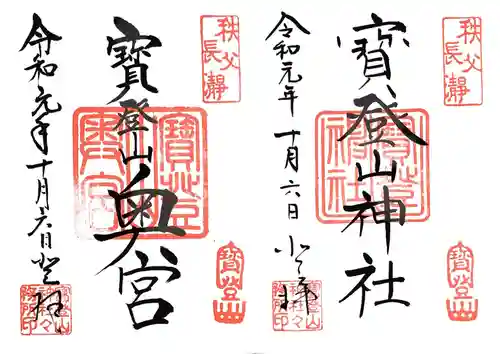 秩父
長瀞
寳登山神社
令和元年十月六日
登拝
寳登山
秩父
長瀞
寳登山奥宮
令和元年十月六日登拝
寳登山